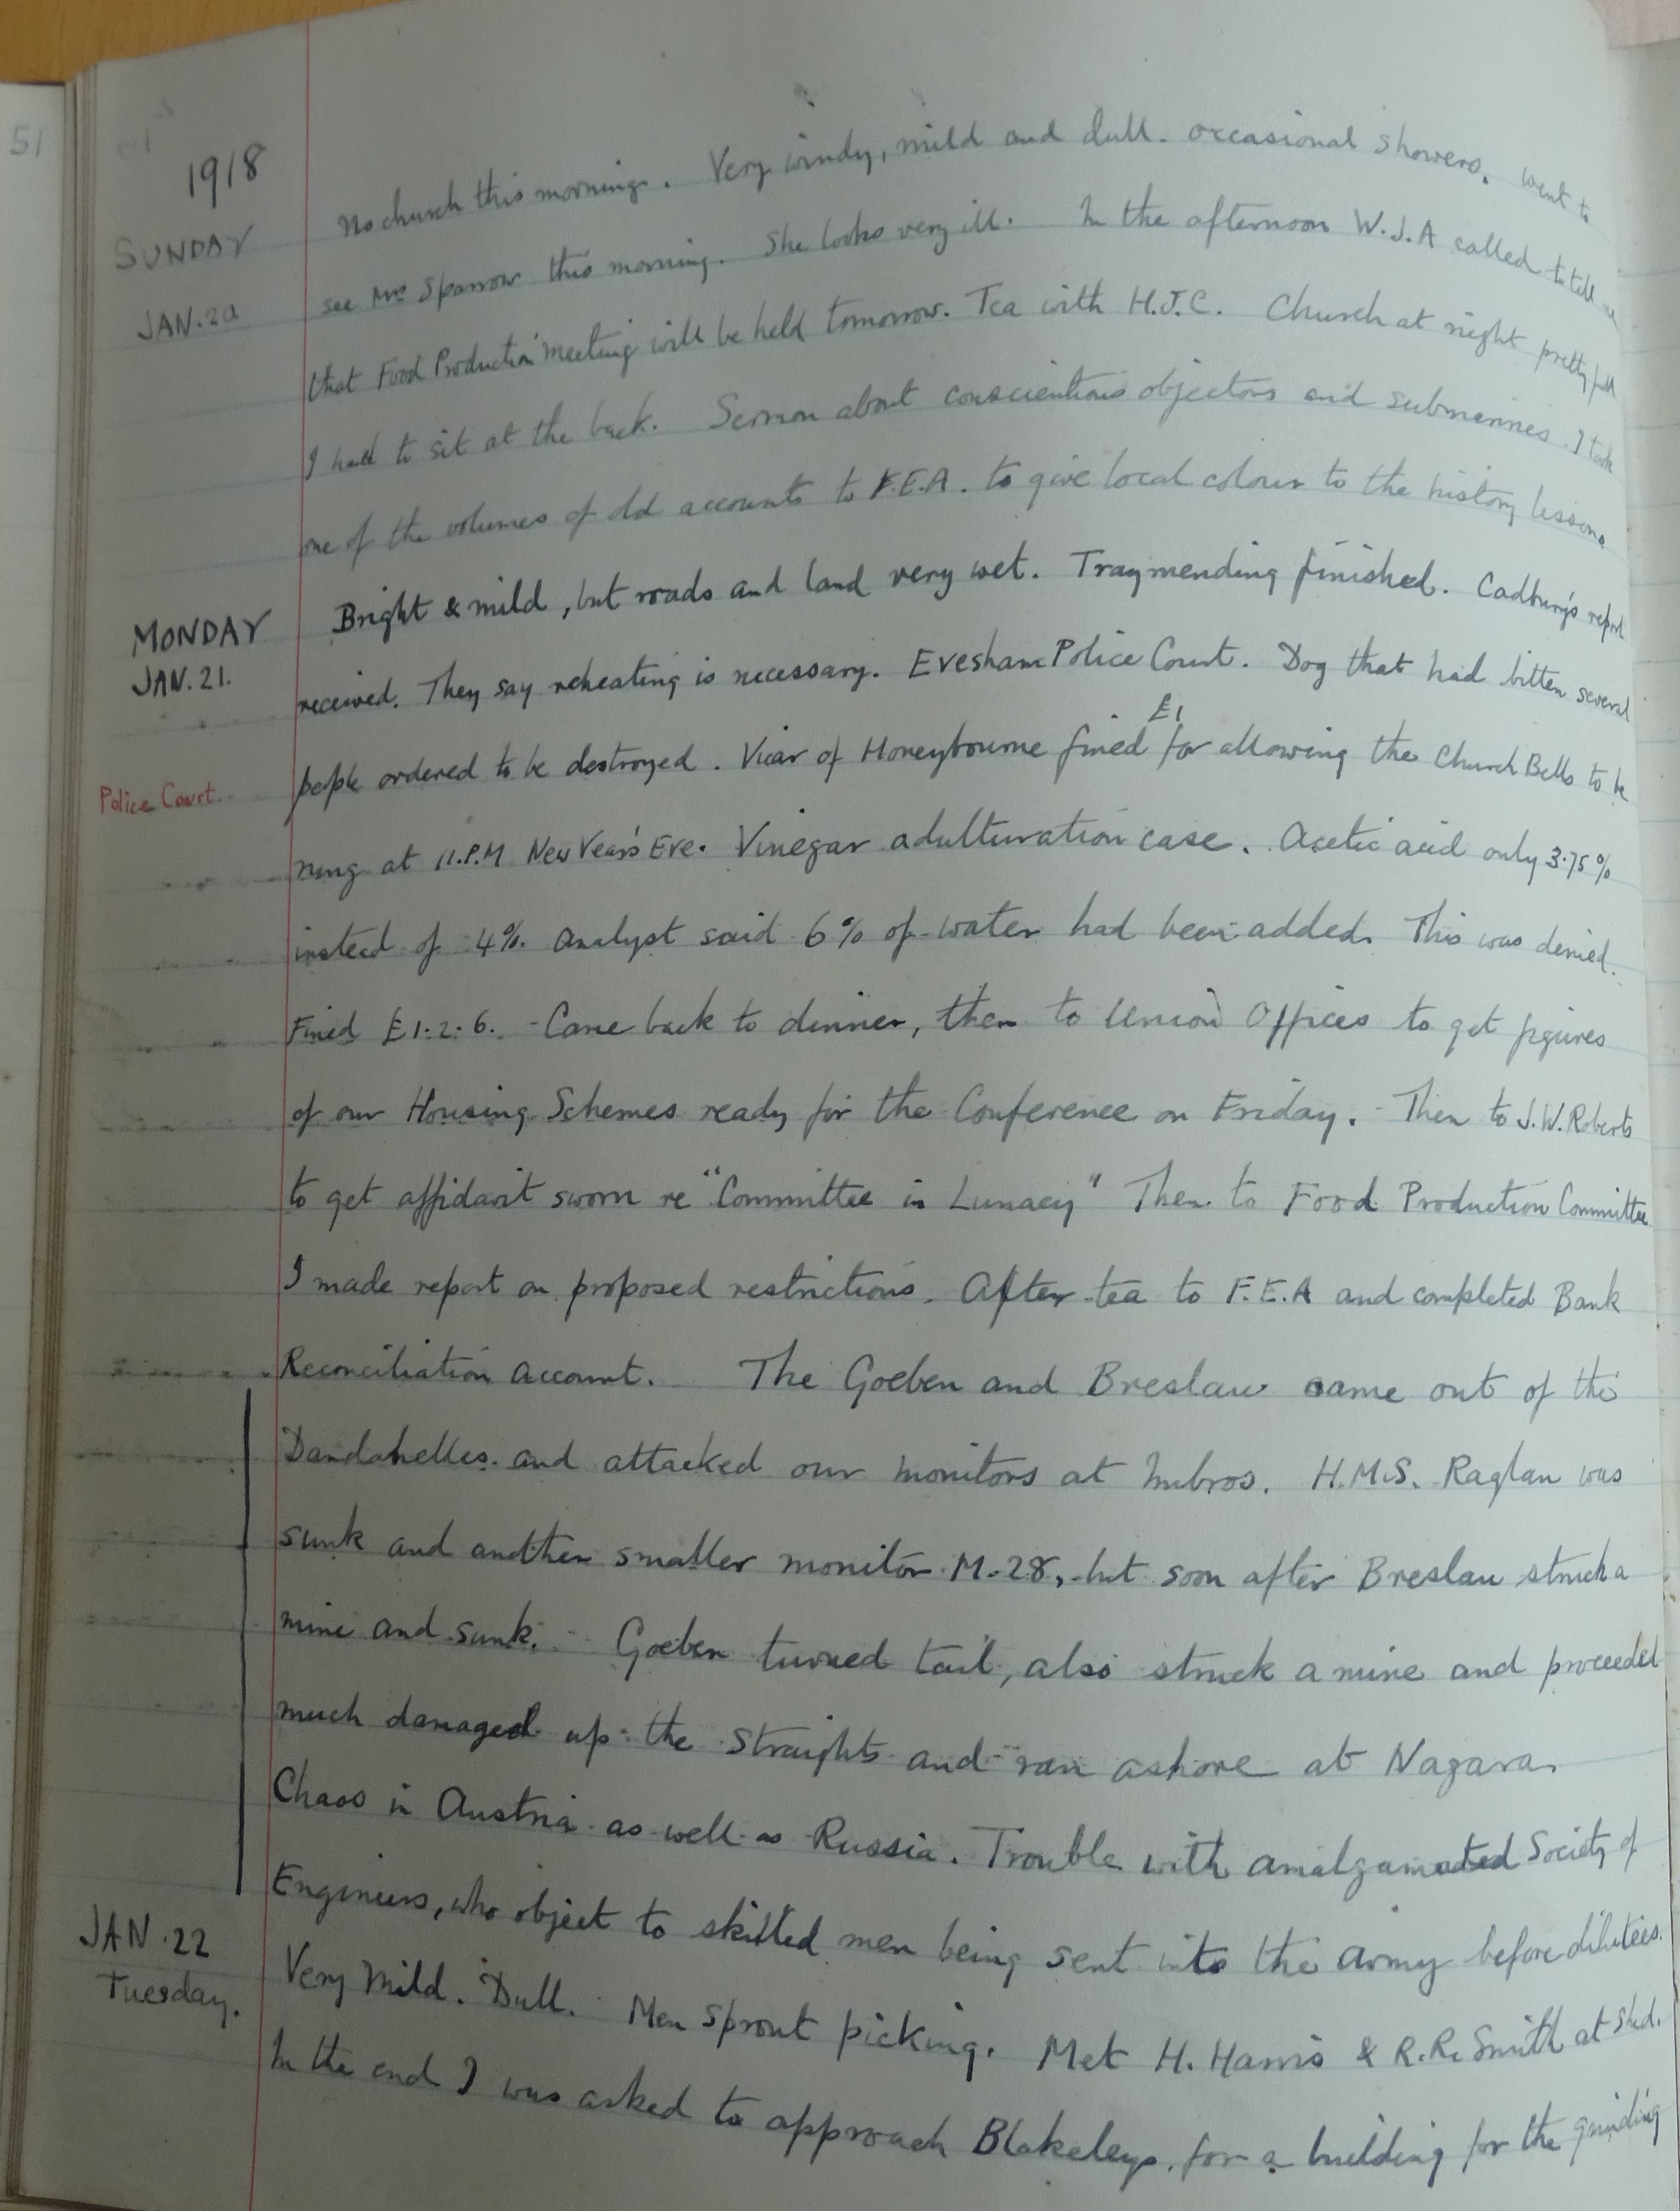 51
1918
SUNDAY
JAN. 20
No church this morning. Very windy, mild and dull. occasional showers. went to
see Mrs Sparrow this morning. She looks very ill. In the afternoon W.J.A called to tell me
that Food Production meeting will be held tomorrow. Tea with H.J.C. Church at night pretty full
I had to sit at the back. Sermon about conscientious objectors and submarines. I took
one of the volumes of old accounts to F.E.A. to give local colour to the history lessons.
MONDAY
JAN. 21.
Bright & mild, but roads and land very wet. Traymending finished. Cadbury's report
received. They say reheating is necessary. Evesham Police Court. Dog that had bitten several
£1
people ordered to be destroyed. Vicar of Honeybourne fined for allowing the Church Bells to be
Police Court.
rung at 11.P.M New Year's Eve. Vinegar adulturation case. Acetic acid only 3.75%
instead of 4%. Analyst said 6% of water had been added. This was denied.
Fined £1:2:6. Came back to dinner, then to Union Offices to get figures
of our Housing Schemes ready for the Conference on Friday. Then to J.W. Roberts
to get affidavit sworn re "Committee in Lunacy" Then to Food Production Committee
I made report on proposed restrictions. After tea to F.E.A and completed Bank
Reconciliation Account. The Goeben and Breslau came out of the
Dardanelles and attacked our monitors at Imbros. H.M.S. Raglan was
sunk and another smaller monitor M.28, but soon after Breslau struck a
mine and sunk. Goeben turned tail, also struck a mine and proceeded
much damaged up the Straights and ran ashore at Nagara.
Chaos in Austria as well as Russia. Trouble with Amalgamated Society of
Engineers, who object to skilled men being sent into the Army before dilutees.
JAN. 22
Tuesday.
Very Mild. Dull. Men sprout picking. Met H. Harris & R.R. Smith at shed.
In the end I was asked to approach Blakeleys for a building for the grinding